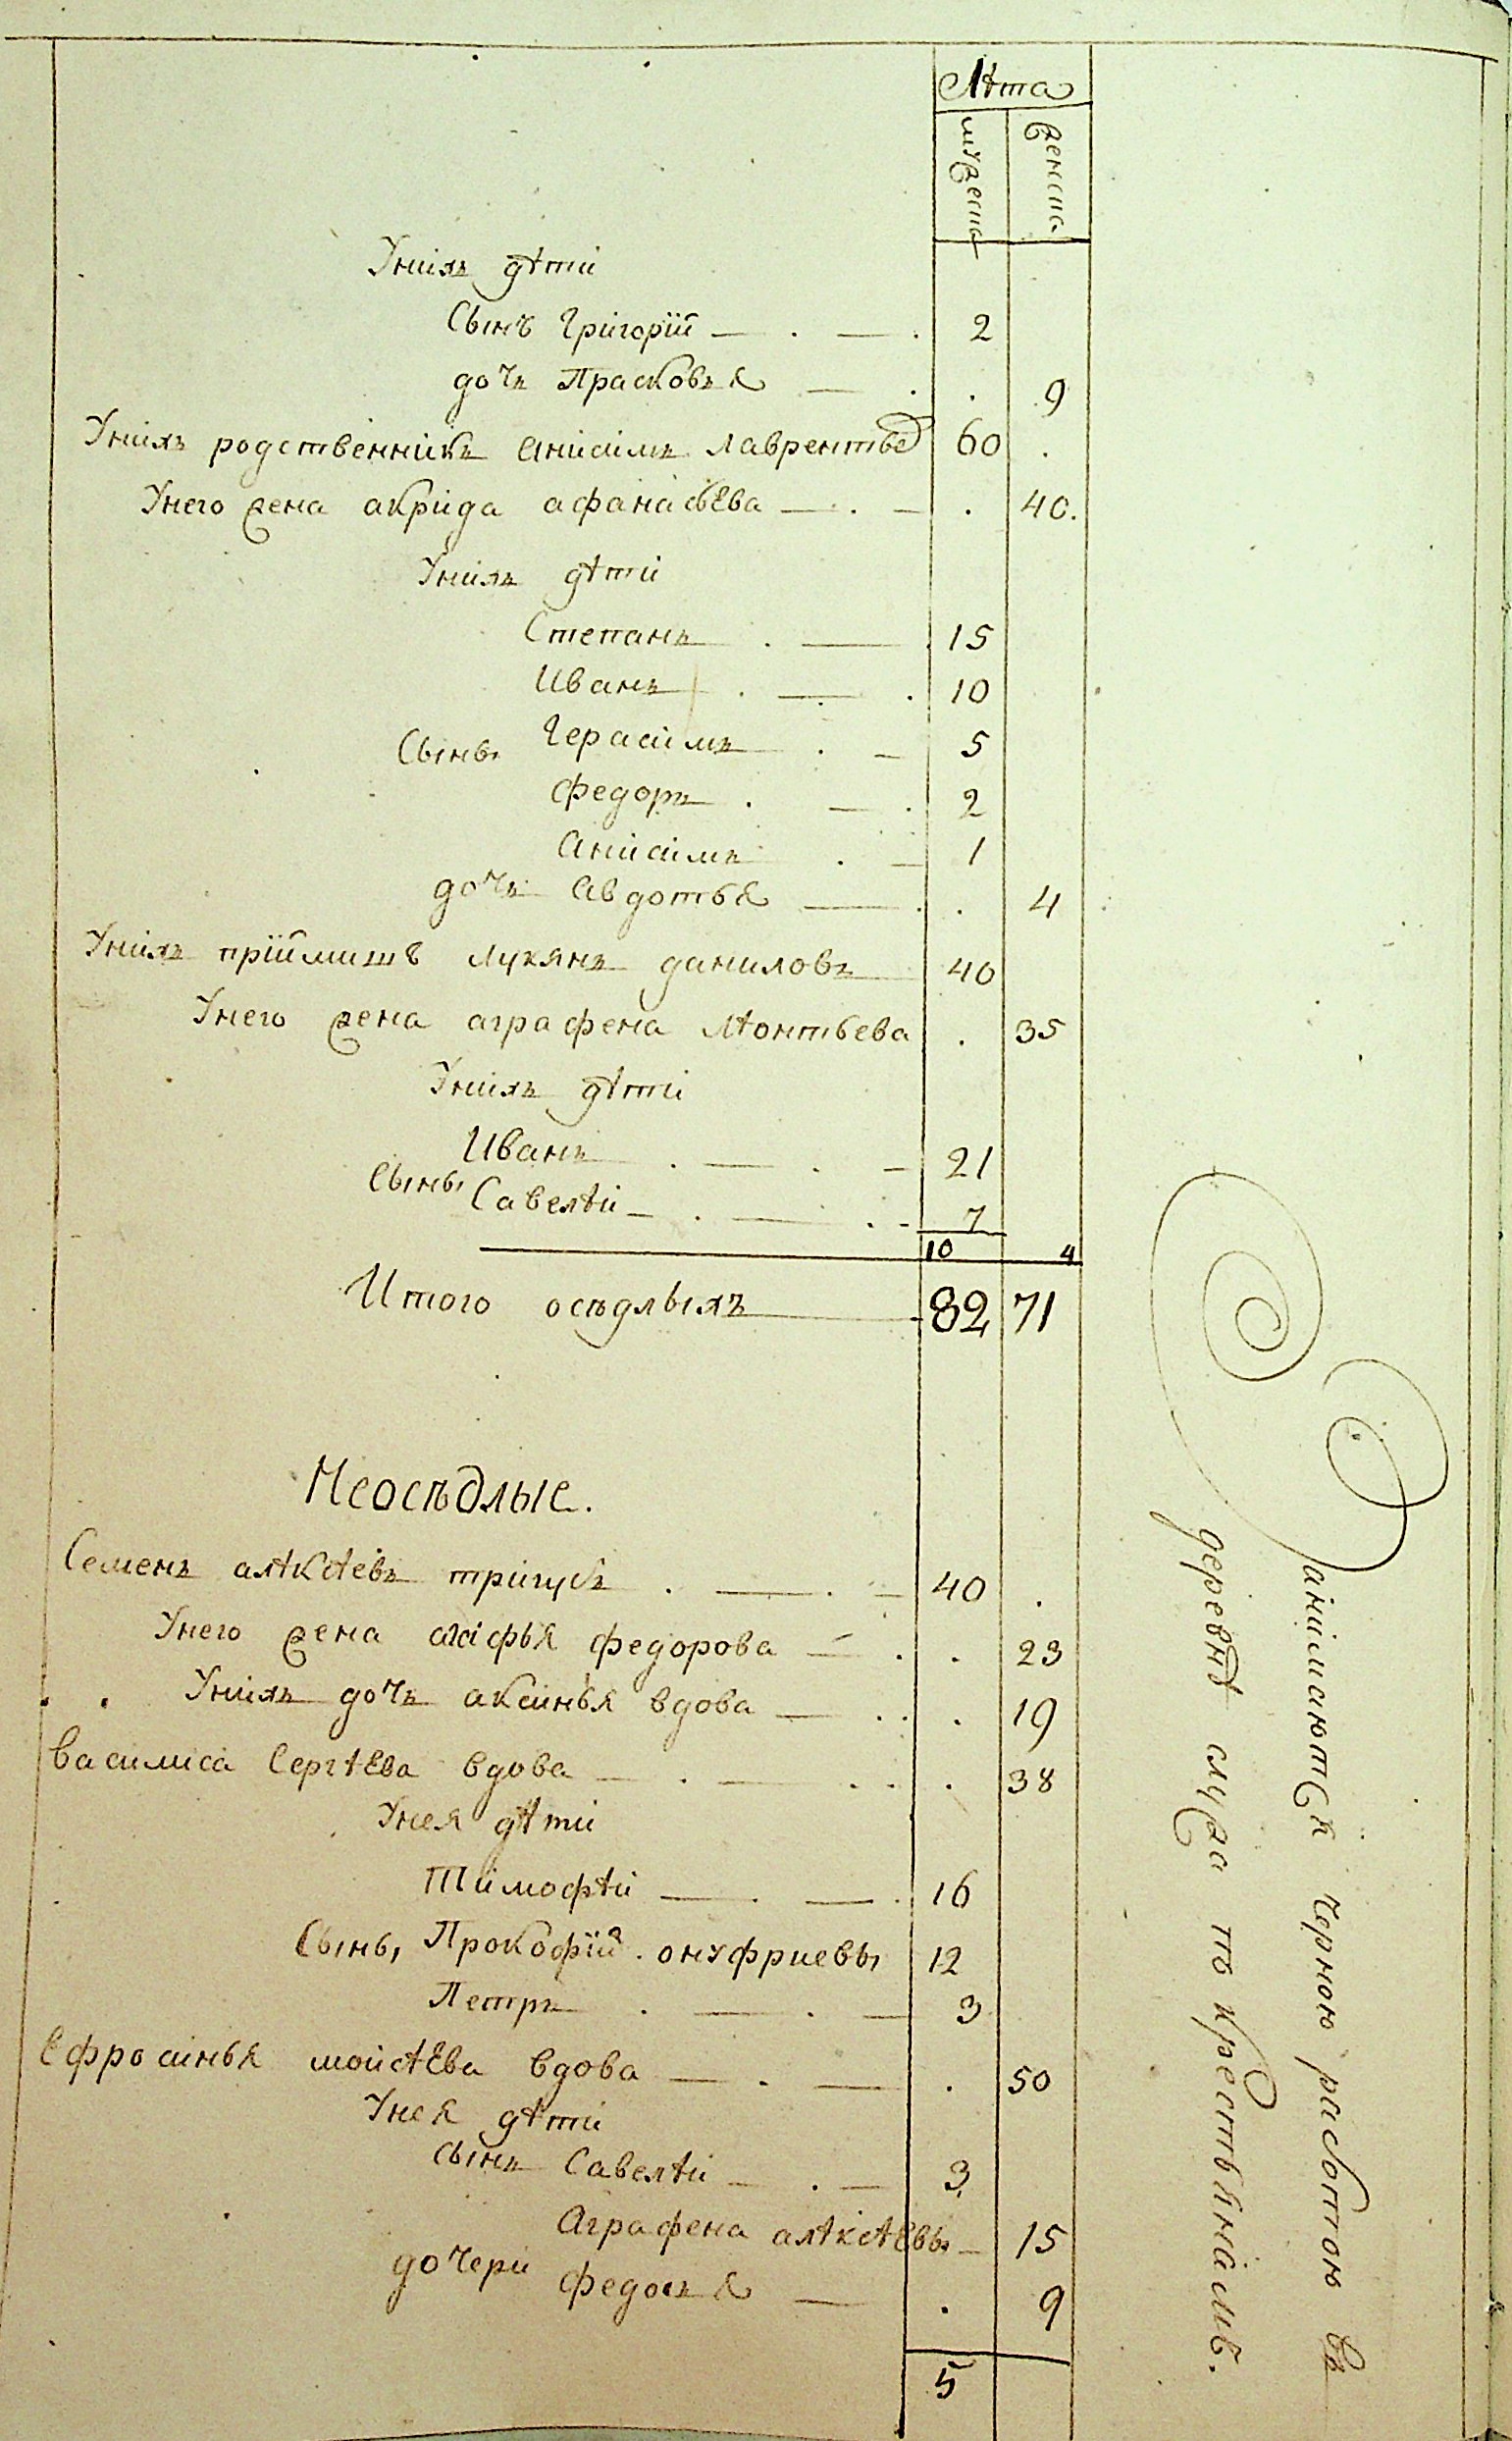 Лѣта
мужеска
женска
Унихъ дѣти
Сынъ Григорїй 2
дочь Прасковья 9
Унихъ родственникъ Анисимъ Лаврентьев 60
Унего жена акрида афанасьева 40.
Унихъ дѣти
Степанъ 15
Иванъ 10
Сыны Герасимъ 5
Федоръ 2
Анисимъ 1
дочь Авдотья 4
Унихъ прїймишъ Лукянъ даниловъ 40
Унего жена аграфена лѣонтьева 35
Унихъ дѣти
Иванъ 21
Сыны Савелѣй 7
10 4
Итого осѣдлыхъ 82 71
Неосѣдлые.
Семенъ алѣксѣевъ 40
Унего жена агафья федорова 23
Унихъ дочь аксинья вдова 19
Василиса Сергѣева вдова 38
Унея дѣти
Тимофѣй 16
Сыны Прокофїй онуфриевы 12
Петръ 3
Ефросинья моисѣева вдова 50
Унея дѣти
Сынъ Савелѣй 3
Аграфена алѣксѣевы 15
дочери Федосья 9
5
Занимаются чорною работою въ
деревнѣ служа по крестьянамъ.